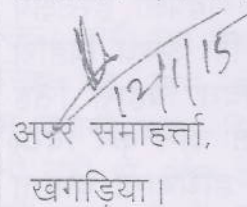 12/1/15
अपर समाहर्त्ता,
खगड़िया।